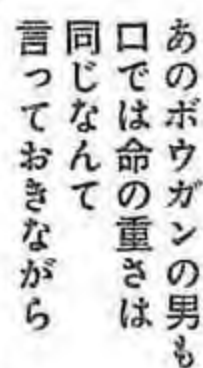 あのボウガンの男も
口では命の重さは
同じなんて
言っておきながら